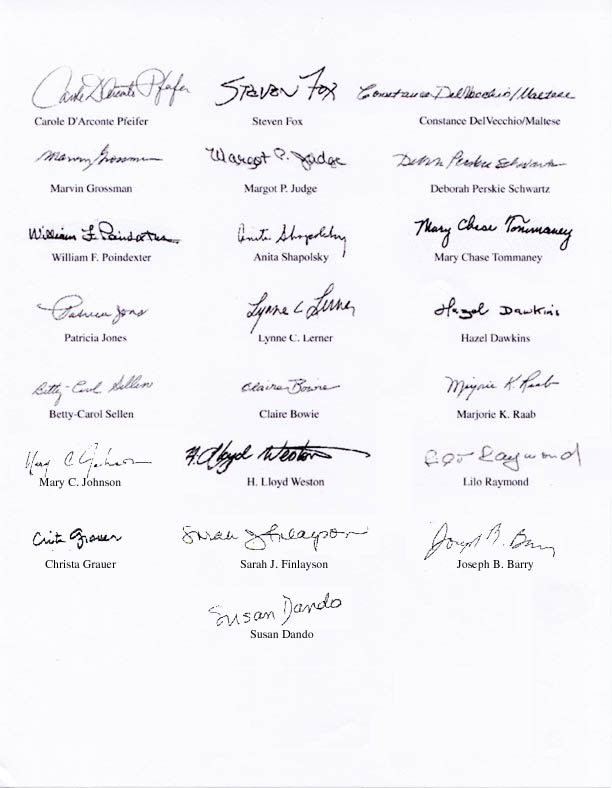 Carole D'Arconte Pfeifer Steven Fox Constance DelVecchio/Maltese
Carole D'Arconte Pfeifer Steven Fox Constance DelVecchio/Maltese
Marvin Grossman Margot P. Judge Deborah Perskie Schwartz
Marvin Grossman Margot P. Judge Deborah Perskie Schwartz
William F. Poindexter Anita Shapolsky Mary Chase Tommaney
William F. Poindexter Anita Shapolsky Mary Chase Tommaney
Patricia Jones Lynne C Lerner Hazel Dawkins
Patricia Jones Lynne C. Lerner Hazel Dawkins
Betty-Carol Sellen Claire Bowie Marjorie K. Raab
Betty-Carol Sellen Claire Bowie Marjorie K. Raab
Mary C Johnson H. Lloyd Weston Lilo Raymond
Mary C. Johnson H. Lloyd Weston Lilo Raymond
Christa Grauer Sarah J Finlayson Joseph B. Barry
Christa Grauer Sarah J. Finlayson Joseph B. Barry
Susan Dando
Susan Dando